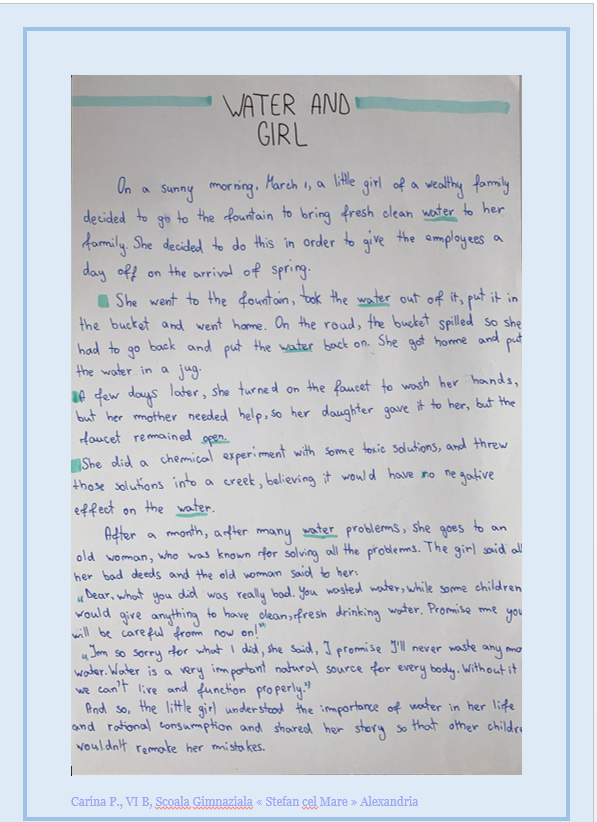 WATER AND
GIRL
On a sunny morning, March 1, a little girl of a wealthy family
decided to go to the fountain to bring fresh clean water to her
family. She decided to do this in order to give the employees a
day off on the arrival of spring.
She went to the fountain, took the water out of it, put it in
the bucket and went home. On the road, the bucket spilled so she
had to go back and put the water back on. She got home and put
the water in a jug.
A few days later, she turned on the faucet to wash her hands,
but her mother needed help, so her daughter gave it to her, but the
faucet remained open.
She did a chemical experiment with some toxic solutions, and threw
those solutions into a creek, believing it would have no negative
effect on the water.
After a month, after many water problems, she goes to an
old woman, who was known for solving all the problems. The girl said all
her bad deeds and the old woman said to her:
„Dear, what you did was really bad. You wasted water, while some children
would give anything to have clean, fresh drinking water. Promise me you
will be careful from now on!"
„I'm so sorry for what I did, she said, I promise I'll never waste any mo
water. Water is a very important natural source for every body. Without it
we can't live and function properly."
And so, the little girl understood the importance of water in her life
and rational consumption and shared her story so that other childre
wouldn't remake her mistakes.
Carina P., VI B, Scoala Gimnaziala « Stefan cel Mare » Alexandria